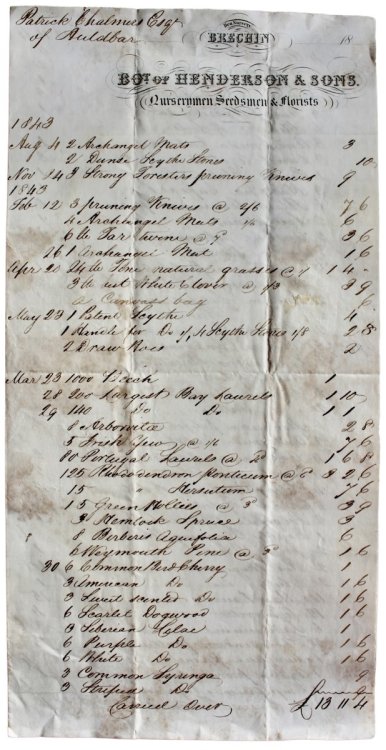 Patrick Chalmers Esqr
of Auldbar
Den Nursery
BRECHIN 18
BOT. OF HENDERSON & SONS.
Nurserymen Seedsmen & Florists
1843
Aug 4 2 Archangel Mats 3
2 Scythe Stones 10
Nov 14 3 Strong Foresters pruning Knives 9
1843
Feb 12 3 pruning Knives @ 2/6 7 6
4 Archangel Mats 1/6 6
6 lb Tar twine @ 7 3 6
26 1 Archangel Mat 1 6
Apr 20 24 lb fine natural grasses @ 1/ 1 4 -
3 lb best White Clover @ 1/3 3 9
a Canvass bag 6
May 23 1 Patent Scythe 4
1 Handle for Do 1/, 4 Scythe Stones 1/8 2 8
2 Draw Hoes 2
Mar 23 1000 Beech 1
28 200 Largest Bay Laurels 1 10
29 140 Do Do 1 1
8 Arborvitae 2 8
5 Irish Yew @ 1/6 7 6
80 Portugal Laurels @ 2d 1 6 8
125 Rhododendron Ponticum @ 6d 3 2 6
15 " Hirsutum 7 6
15 Green Hollies @ 3d 3 9
3 Hemlock Spruce 3
8 Berberis Aquifolia 6
6 Weymouth Pine @ 3d 1 6
30 6 Common Bird Cherry 1
3 American Do 1 6
3 Sweet scented Do 1 6
6 Scarlet Dogwood 1 6
3 Siberian Lilac 1
6 Purple Do 1 6
6 White Do 1 6
3 Common Syringa 9
3 Striped Do
Carried Over £ 13 11 4